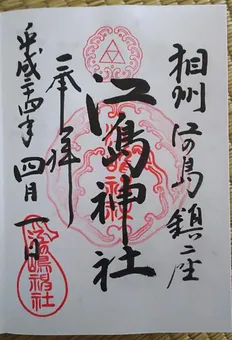 相州江の島鎮座
奉拝
江島神社
平成二十四年四月一日